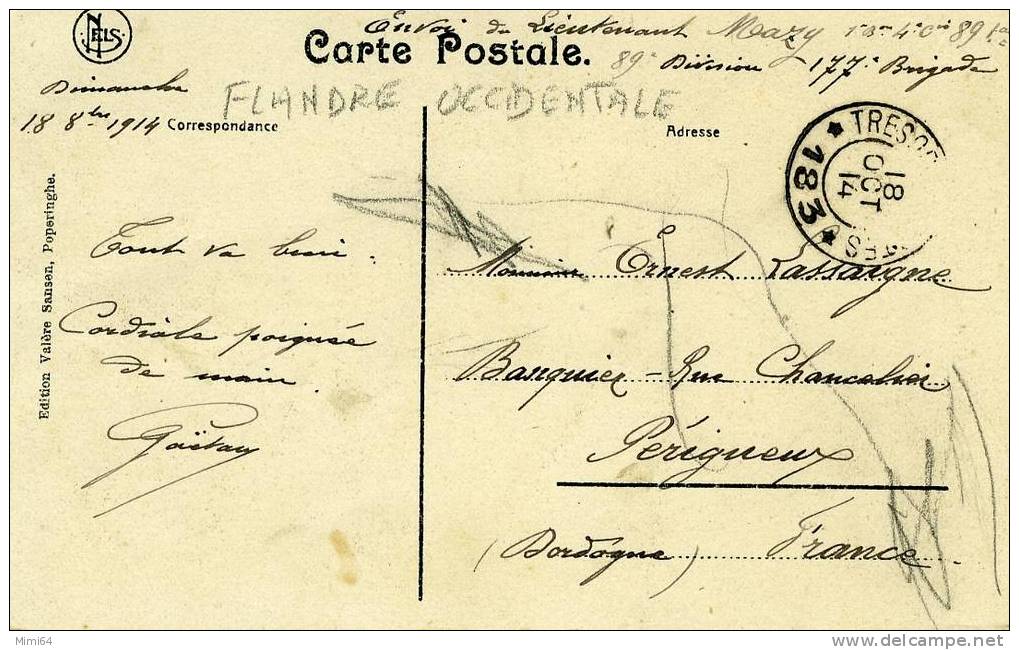 NELS
Envoi du Lieutenant Mazy
Carte Postale.
89e Division 177e Brigade
Dimanche
18 8bre 1914
FLANDRE OCCIDENTALE
Correspondance
Adresse
TRESOR
18
OCT
14
* 183 *
Edition Valère Sansen, Poperinghe.
Tout va bien.
Cordiale poignée
de main.
Gaëtan
Monsieur Ernest Lassaigne
Banquier - Rue Chancelier
Périgueux
(Dordogne) France
Mimi64
delcampe.net